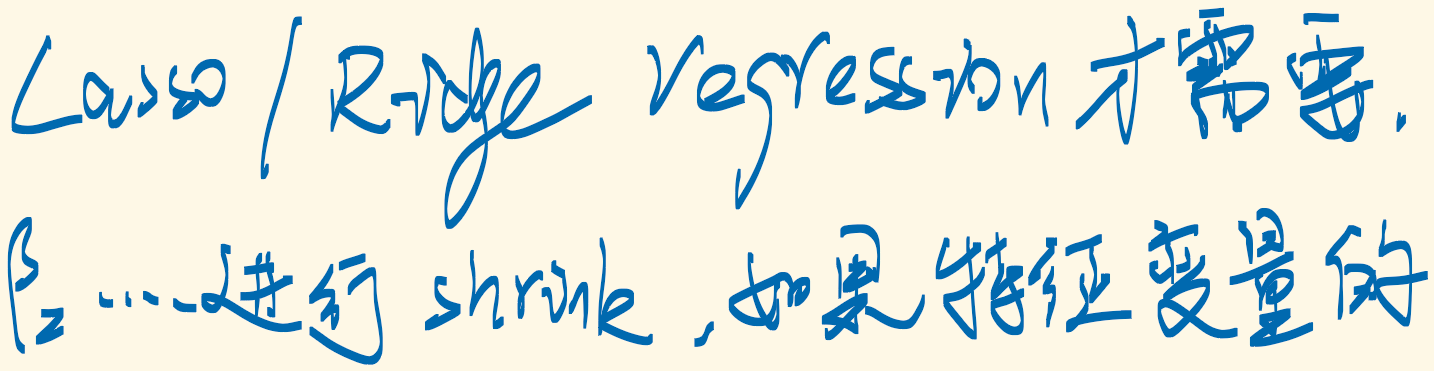 Lasso / Ridge regression 才需要.
β₂ ……进行 shrink ,如果特征变量的